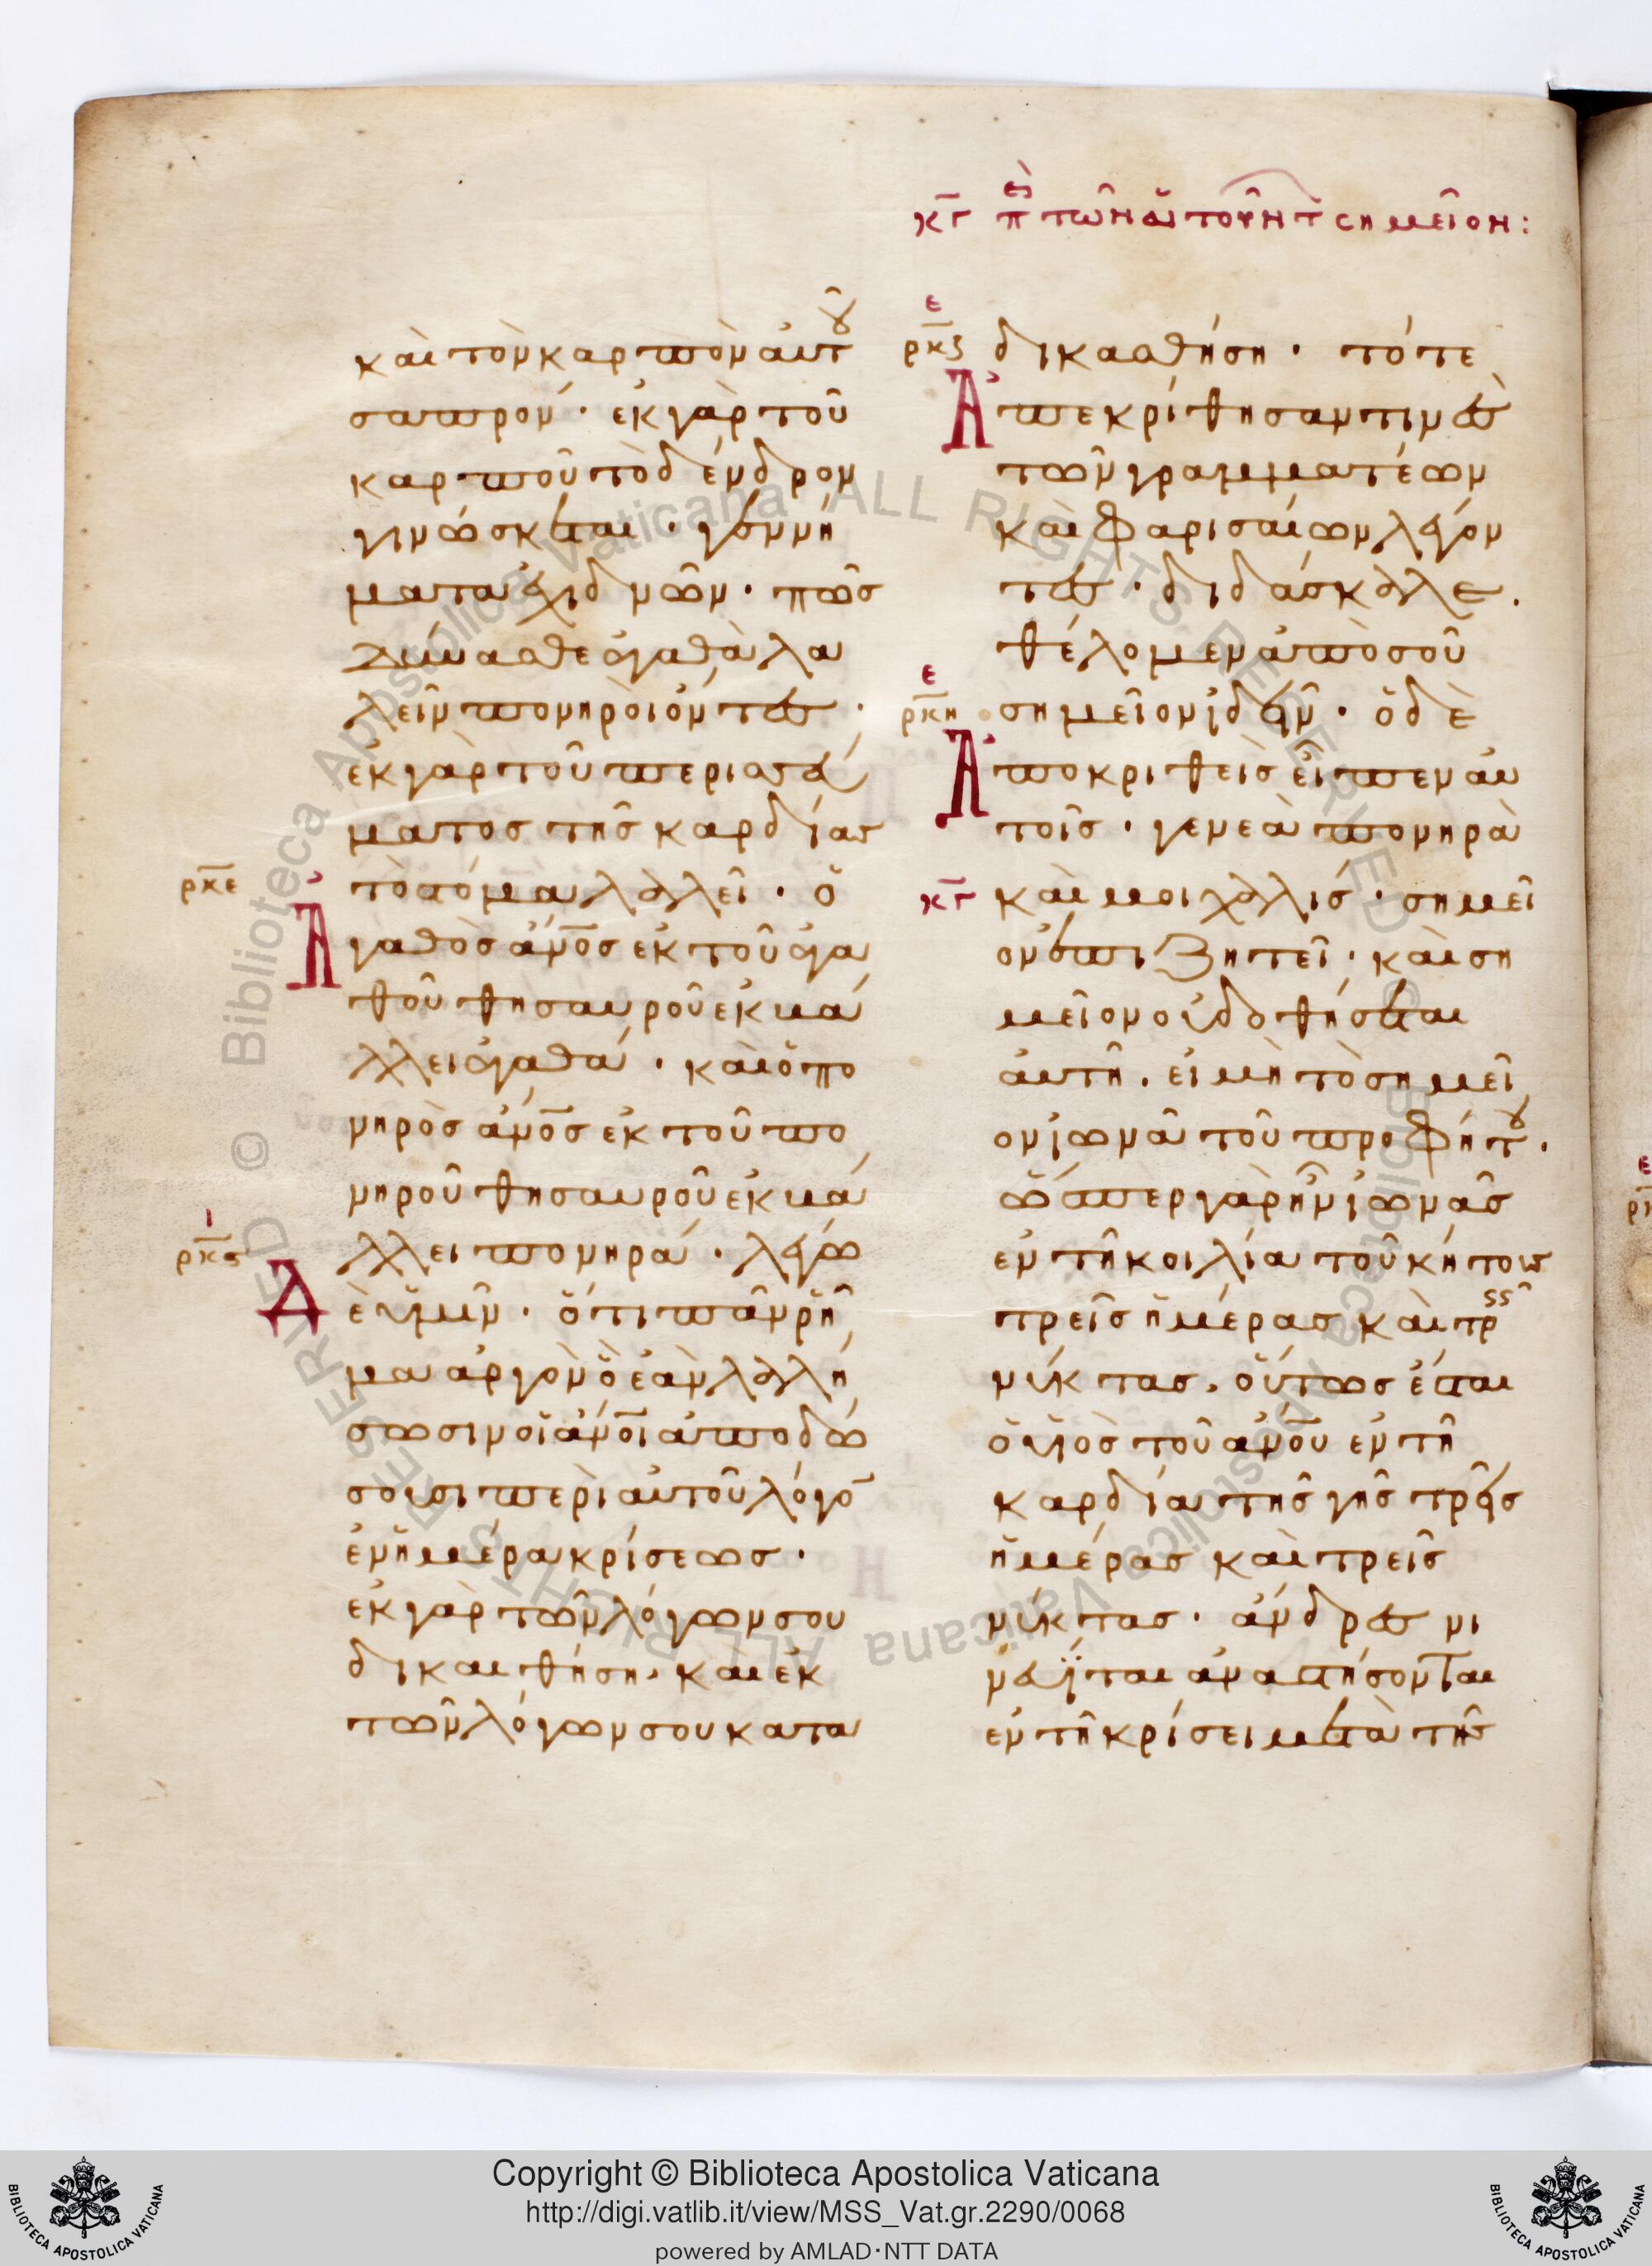 κγ πε τῶν αἰτούντ σημεῖον:
καὶ τὸν καρπὸν αὐτοῦ
σαπρόν· ἐκ γὰρ τοῦ
καρποῦ τὸ δένδρον
γινώσκεται· γεννή
ματα ἐχιδνῶν· πῶς
δύνασθε ἀγαθὰ λα
λεῖν πονηροὶ ὄντες·
ἐκ γὰρ τοῦ περισσεύ
ματος τῆς καρδίας
ρκε τὸ στόμα λαλεῖ· ὁ
Ἀγαθὸς ἄνος ἐκ τοῦ ἀγα
θοῦ θησαυροῦ ἐκβά
λλει ἀγαθά· καὶ ὁ πο
νηρὸς ἄνος ἐκ τοῦ πο
νηροῦ θησαυροῦ ἐκβά
ι
ρκς λλει πονηρά· λέγω
Δὲ ὑμῖν· ὅτι πᾶν ρῆ
μα ἀργὸν ὃ ἐὰν λαλή
σωσιν οἱ ἄνοι ἀποδώ
σουσι περὶ αὐτοῦ λόγο
ἐν ἡμέρα κρίσεως·
ἐκ γὰρ τῶν λόγων σου
δικαιθήση, καὶ ἐκ
τῶν λόγων σου κατα
ε
ρκζ δικασθήση· τότε
Ἀπεκρίθησαν τινὲς
τῶν γραμματέων
καὶ φαρισαίων λέγον
τες· διδάσκαλε.
θέλομεν ἀπὸ σοῦ
ε
ρκη σημεῖον ἰδεῖν· ὁ δὲ
Ἀποκριθεὶς εἶπεν αὐ
τοῖς· γενεὰ πονηρὰ
κγ καὶ μοιχαλὶς· σημεῖ
ον ἐπιζητεῖ· καὶ ση
μεῖον οὐ δοθήσεται
αὐτῆ. εἰ μὴ τὸ σημεῖ
ον ἰωνᾶ τοῦ προφήτου.
ὥσπερ γὰρ ἦν ἰωνᾶς
ἐν τῆ κοιλία τοῦ κήτους
τρεῖς ἡμέρας καὶ τρ
νύκτας, οὕτως ἔσται
ὁ υἱὸς τοῦ ἀνου ἐν τῆ
καρδία τῆς γῆς τρεῖς
ἡμέρας καὶ τρεῖς
νύκτας· ἄνδρες νι
νευῖται ἀναστήσονται
ἐν τῆ κρίσει μετὰ τῆς
Copyright © Biblioteca Apostolica Vaticana
http://digi.vatlib.it/view/MSS_Vat.gr.2290/0068
powered by AMLAD·NTT DATA
BIBLIOTECA APOSTOLICA VATICANA
BIBLIOTECA APOSTOLICA VATICANA
Biblioteca Apostolica Vaticana ALL RIGHTS RESERVED © Biblioteca Apostolica Vaticana ALL RIGHTS RESERVED ©